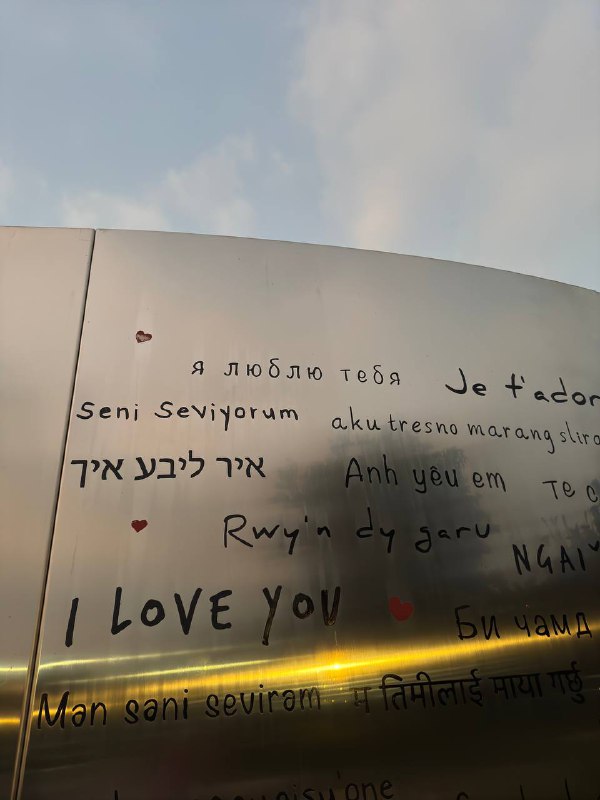 я люблю тебя
Je t'ador
Seni Seviyorum
aku tresno marang sliro
איך ליבע איר
Anh yêu em
те о
Rwy'n dy garu
NGAI
I LOVE YOU
Би чамд
Mən səni sevirəm
म तिमीलाई माया गर्छु